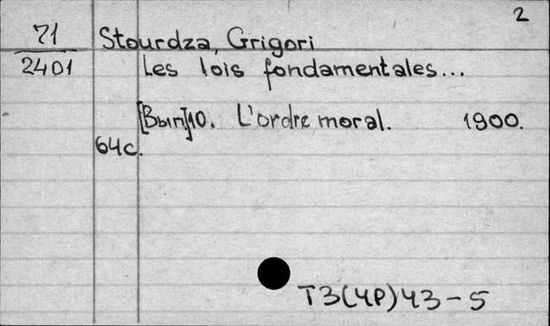 2
71 Stourdza, Grigori
2401 Les lois fondamentales...
[Вып]10. L'ordre moral. 1900.
64с.
Т3(4Р)43-5